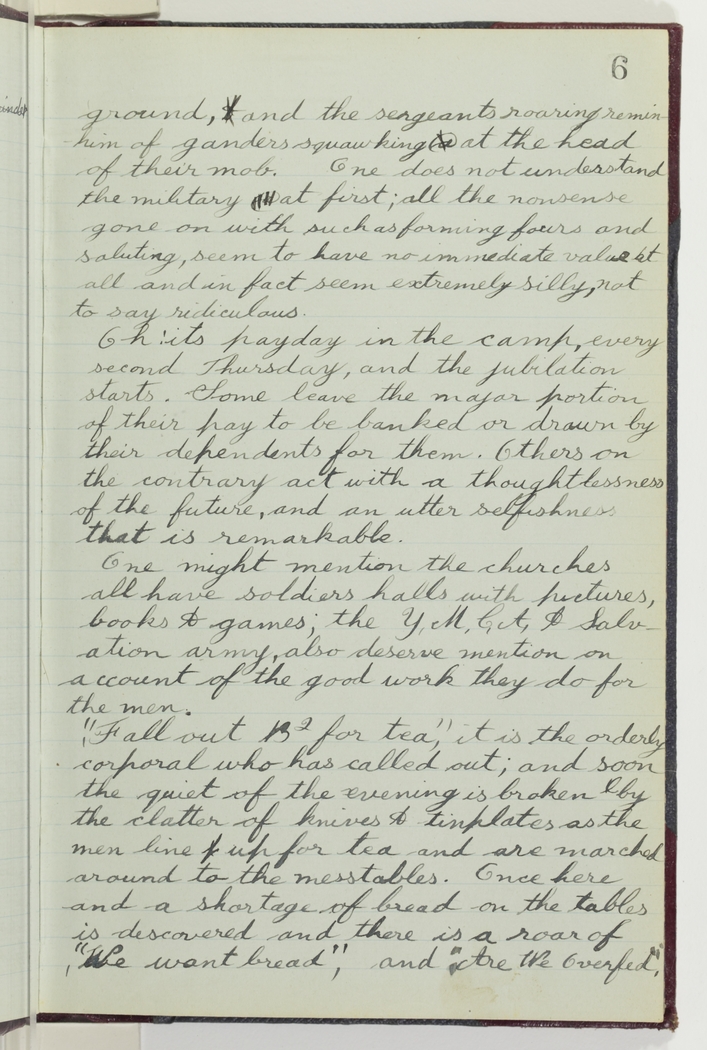 6
ground, and the sergeants roaring remin-
him of ganders squawking at the head
of their mob. One does not understand
the military at first; all the nonsense
gone on with such as forming fours and
saluting, seem to have no immediate value at
all and in fact seem extremely silly, not
to say ridiculous.
Oh! its payday in the camp, every
second Thursday, and the jubilation
starts. Some leave the major portion
of their pay to be banked or drawn by
their dependents for them. Others on
the contrary act with a thoughtlessness
of the future, and an utter selfishness
that is remarkable.
One might mention the churches
all have soldiers halls with pictures,
books & games; the Y,M,C,A, & Salv-
ation army, also deserve mention on
account of the good work they do for
the men.
"Fall out B2 for tea", it is the orderly
corporal who has called out; and soon
the quiet of the evening is broken by
the clatter of knives & tinplates as the
men line up for tea and are marched
around to the messtables. Once here
and a shortage of bread on the tables
is discovered and there is a roar of
"We want bread", and "Are We Overfed",